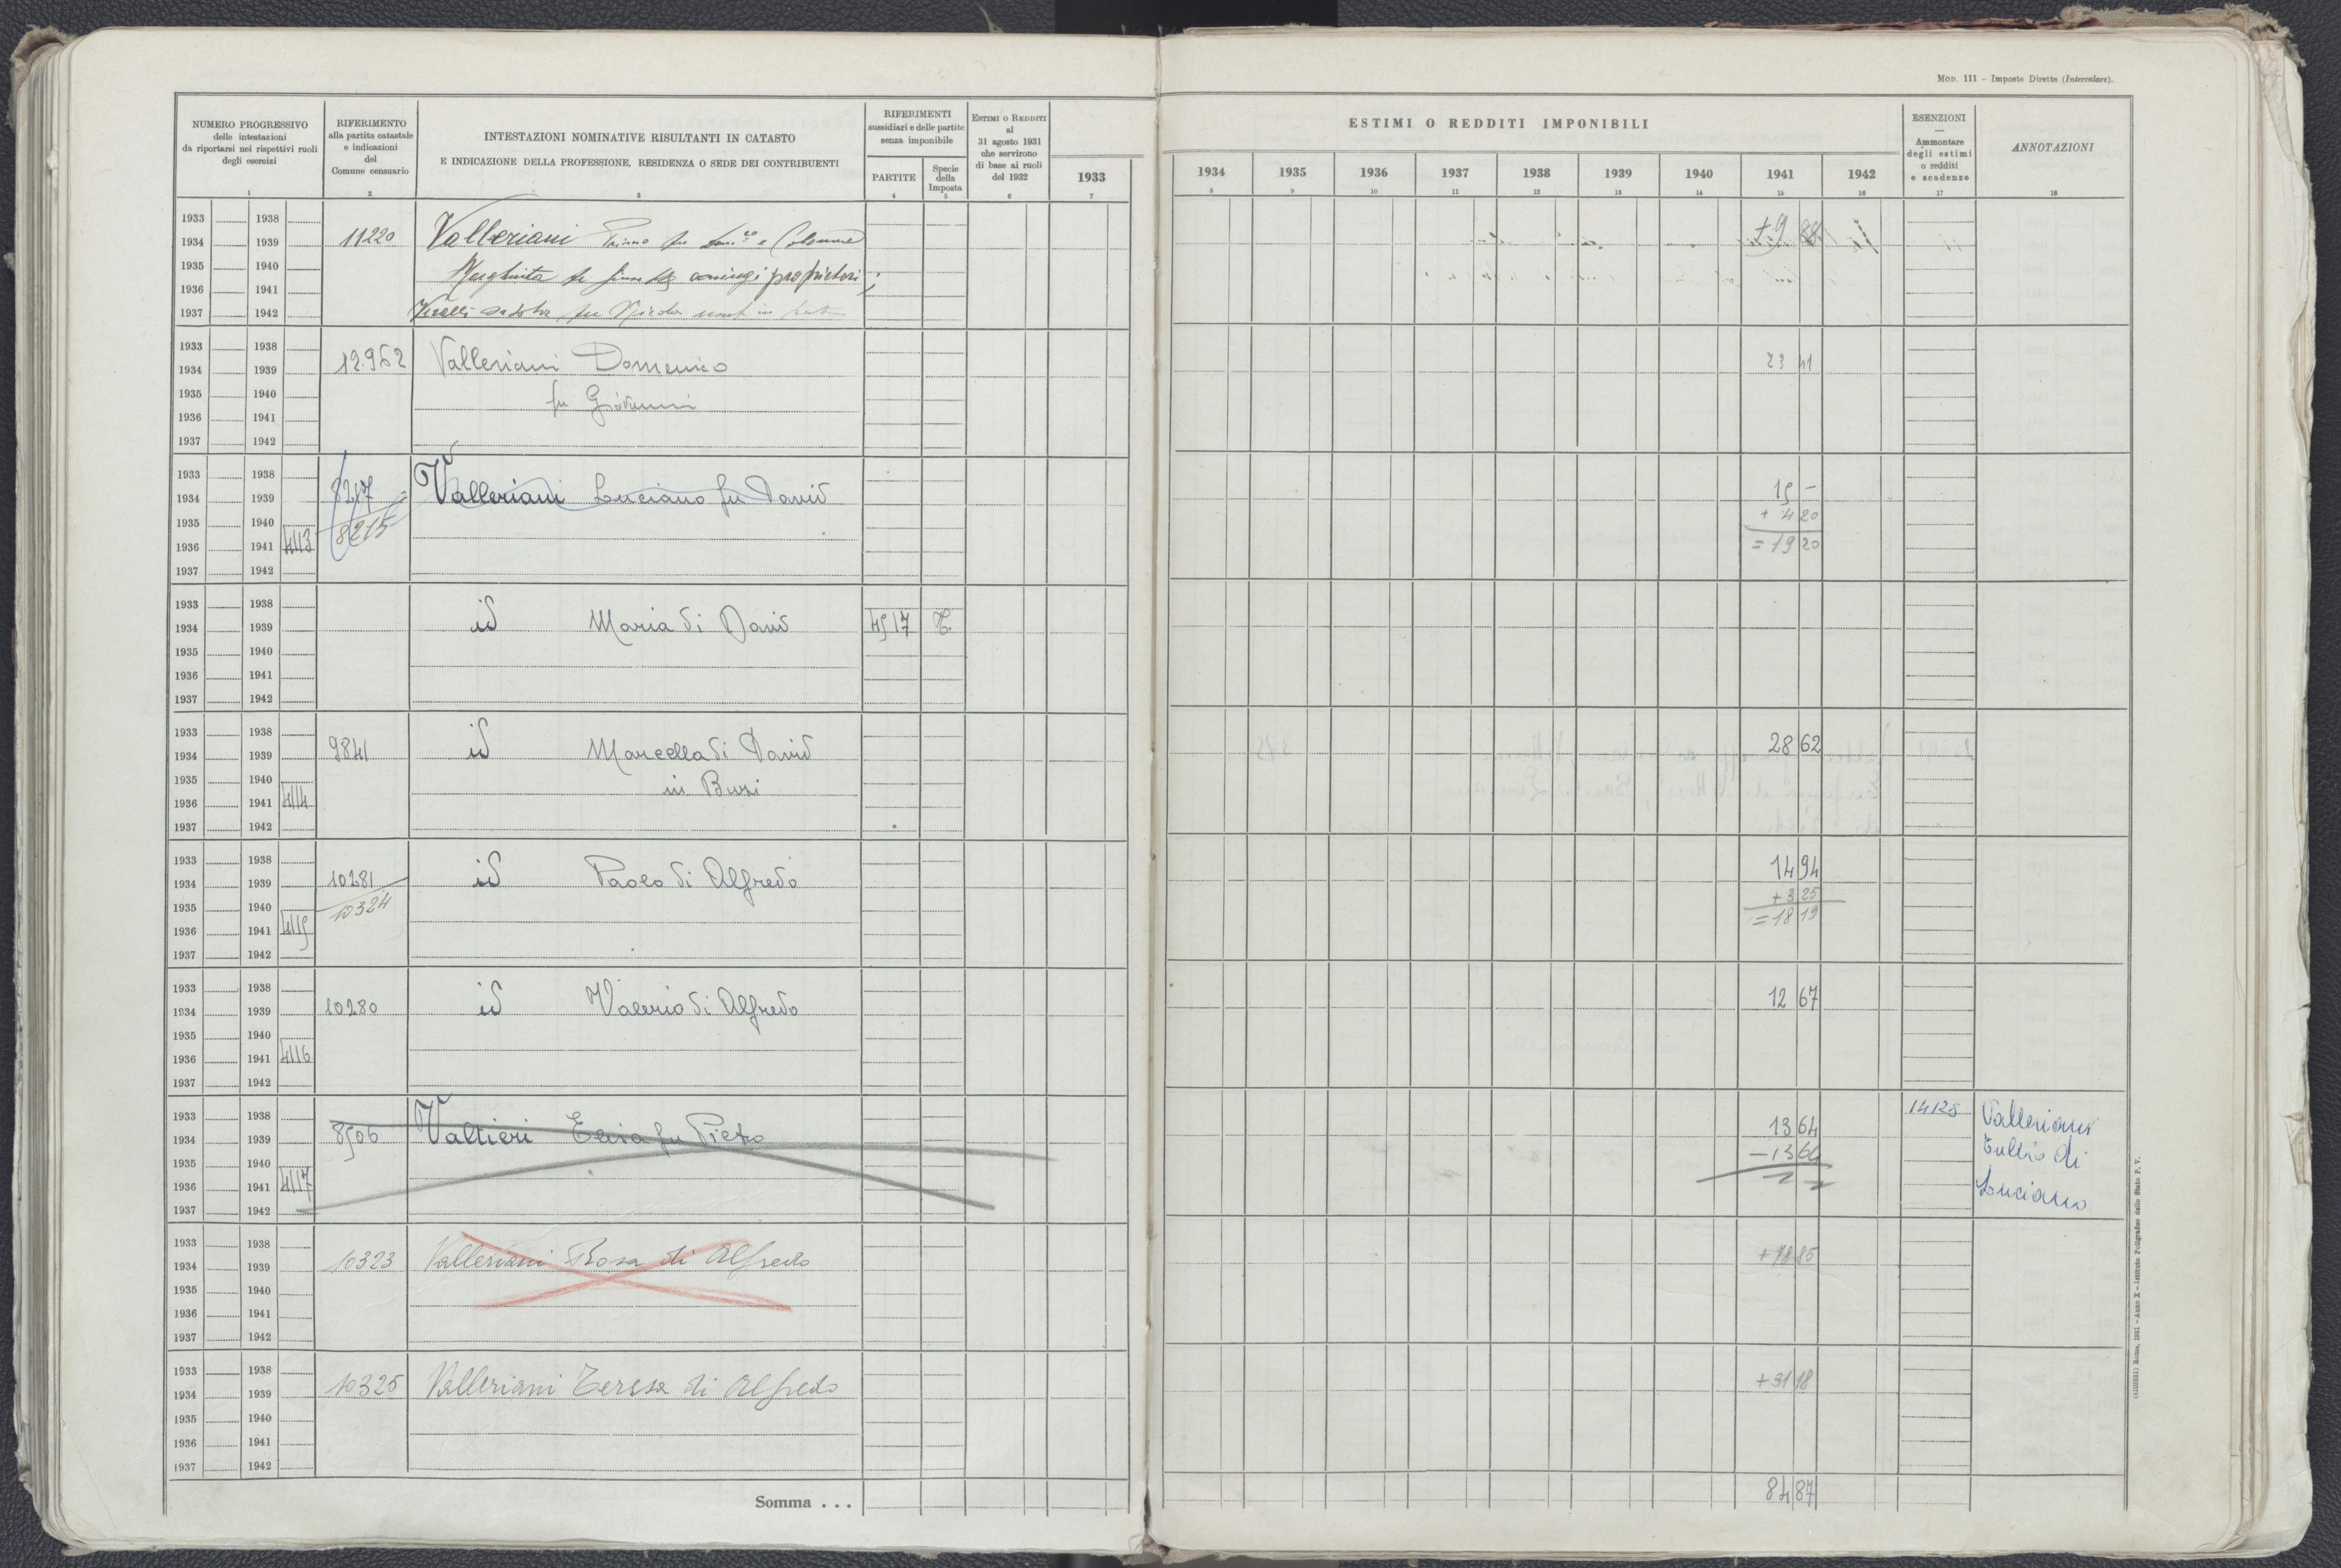 MOD. 111 - Imposte Dirette (Intercalare).
NUMERO PROGRESSIVO
delle intestazioni
da riportarsi nei rispettivi ruoli
degli esercizi
1
RIFERIMENTO
alla partita catastale
e indicazioni
del
Comune censuario
2
INTESTAZIONI NOMINATIVE RISULTANTI IN CATASTO
E INDICAZIONE DELLA PROFESSIONE, RESIDENZA O SEDE DEI CONTRIBUENTI
3
RIFERIMENTI
sussidiari e delle partite
senza imponibile
PARTITE
4
Specie
della
Imposta
5
ESTIMI O REDDITI
al
31 agosto 1931
che servirono
di base ai ruoli
del 1932
6
1933
7
ESTIMI O REDDITI IMPONIBILI
1934 1935 1936 1937 1938 1939 1940 1941 1942
8 9 10 11 12 13 14 15 16
ESENZIONI
—
Ammontare
degli estimi
o redditi
e scadenze
17
ANNOTAZIONI
18
1933 1938
1934 1939 11220 Valleriani Primo fu e Colonna
1935 1940 Margherita fu coniugi proprietari
1936 1941
1937 1942 fu
1933 1938
1934 1939 12.962 Valleriani Domenico 23 41
1935 1940 fu Giovanni
1936 1941
1937 1942
1933 1938
1934 1939 8207 Valleriani Luciano fu David 15 –
1935 1940 8215 + 4 20
1936 1941 4113 = 19 20
1937 1942
1933 1938
1934 1939 id Maria di David 4517 T.
1935 1940
1936 1941
1937 1942
1933 1938
1934 1939 9841 id Marcella di David 28 62
1935 1940 in Buzi
1936 1941 4114
1937 1942
1933 1938
1934 1939 10281 id Paolo di Alfredo 14 94
1935 1940 10324 + 3 25
1936 1941 4115 = 18 19
1937 1942
1933 1938
1934 1939 10280 id Valerio di Alfredo 12 67
1935 1940
1936 1941 4116
1937 1942
1933 1938 14128 Valleriani
1934 1939 8506 Valtieri Elisa fu Pietro 13 64
1935 1940 – 13 64 Tullio di
1936 1941 4117 Luciano
1937 1942
1933 1938
1934 1939 10323 Valleriani Rosa di Alfredo
1935 1940
1936 1941
1937 1942
1933 1938
1934 1939 10325 Valleriani Teresa di Alfredo + 31 18
1935 1940
1936 1941
1937 1942
Somma . . . 84 87